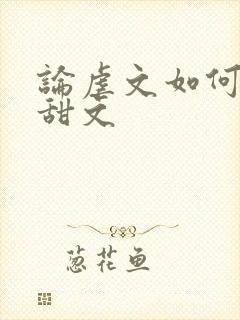 論虐文如何
甜文
葱花鱼